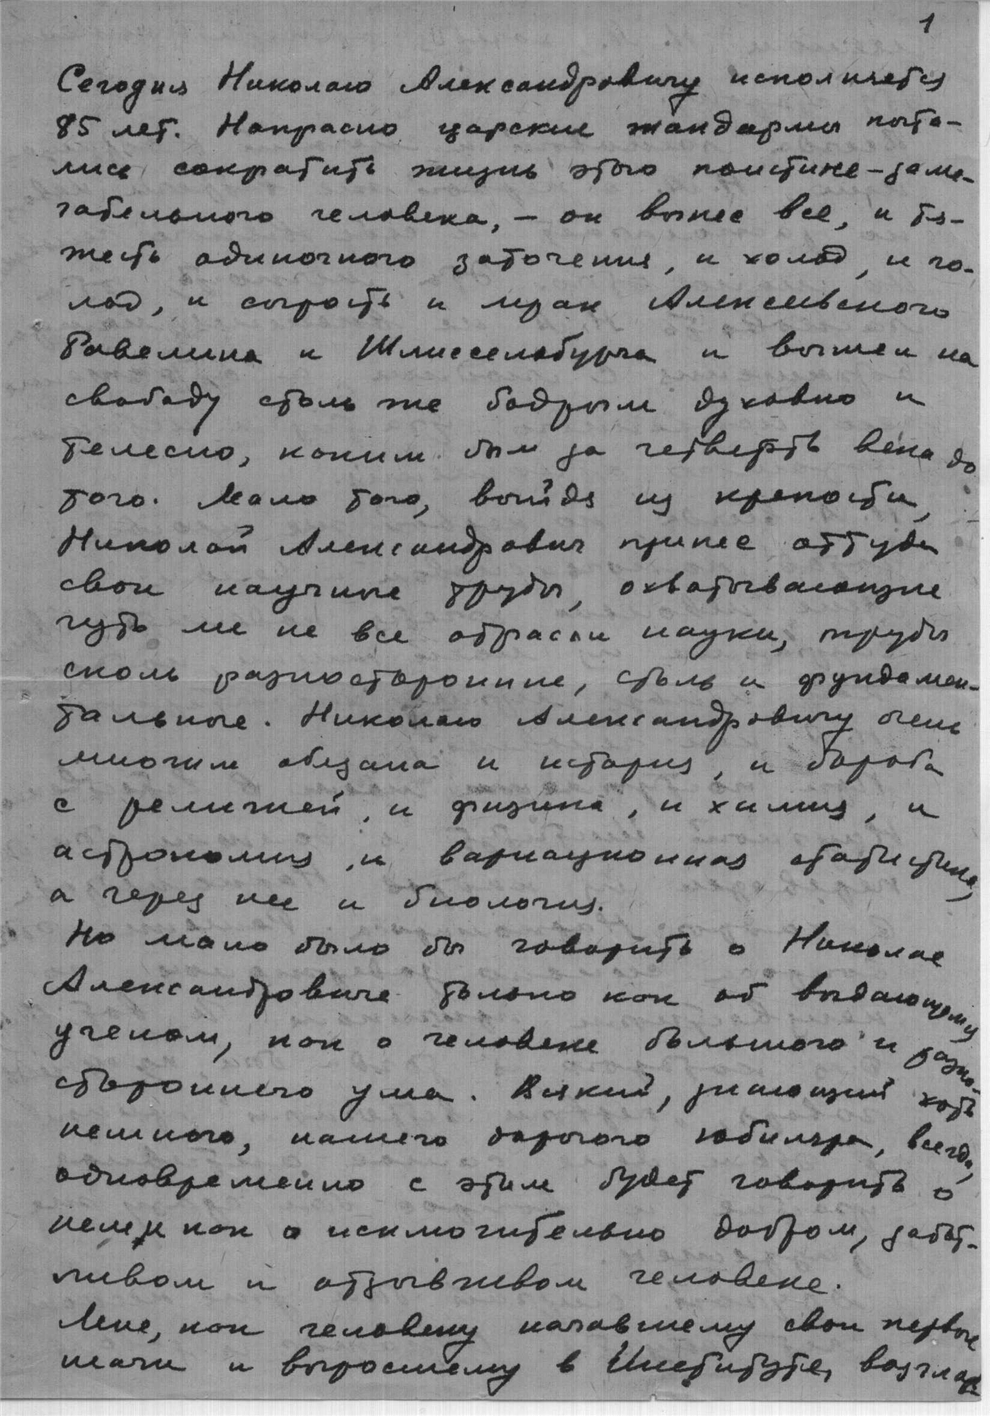 1
Сегодня Николаю Александровичу исполняется
85 лет. Напрасно царские жандармы пыта-
лись сократить жизнь этого поистине-заме-
чательного человека, – он вынес все, и тя-
жесть одиночного заточения, и холод, и го-
лод, и сырость и мрак Алексеевского
Равелина и Шлиссельбурга и вышел на
свободу столь же бодрым духовно и
телесно, каким был за четверть века до
того. Мало того, выйдя из крепости,
Николай Александрович принес оттуда
свои научные труды, охватывающие
чуть ли не все отрасли науки, труды
сколь разносторонние, столь и фундамен-
тальные. Николаю Александровичу очень
многим обязана и история, и борьба
с религией, и физика, и химия, и
астрономия, и вариационная статистика,
а через нее и биология.
Но мало было бы говорить о Николае
Александровиче только как об выдающемуся
ученом, как о человеке большого и разно-
стороннего ума. Всякий, знающий хоть
немного, нашего дорогого юбиляра, всегда,
одновременно с этим будет говорить о
нем и как о исключительно добром, забот-
ливом и отзывчивом человеке.
Мне, как человеку начавшему свои первые
шаги и выросшему в Институте, возглав-